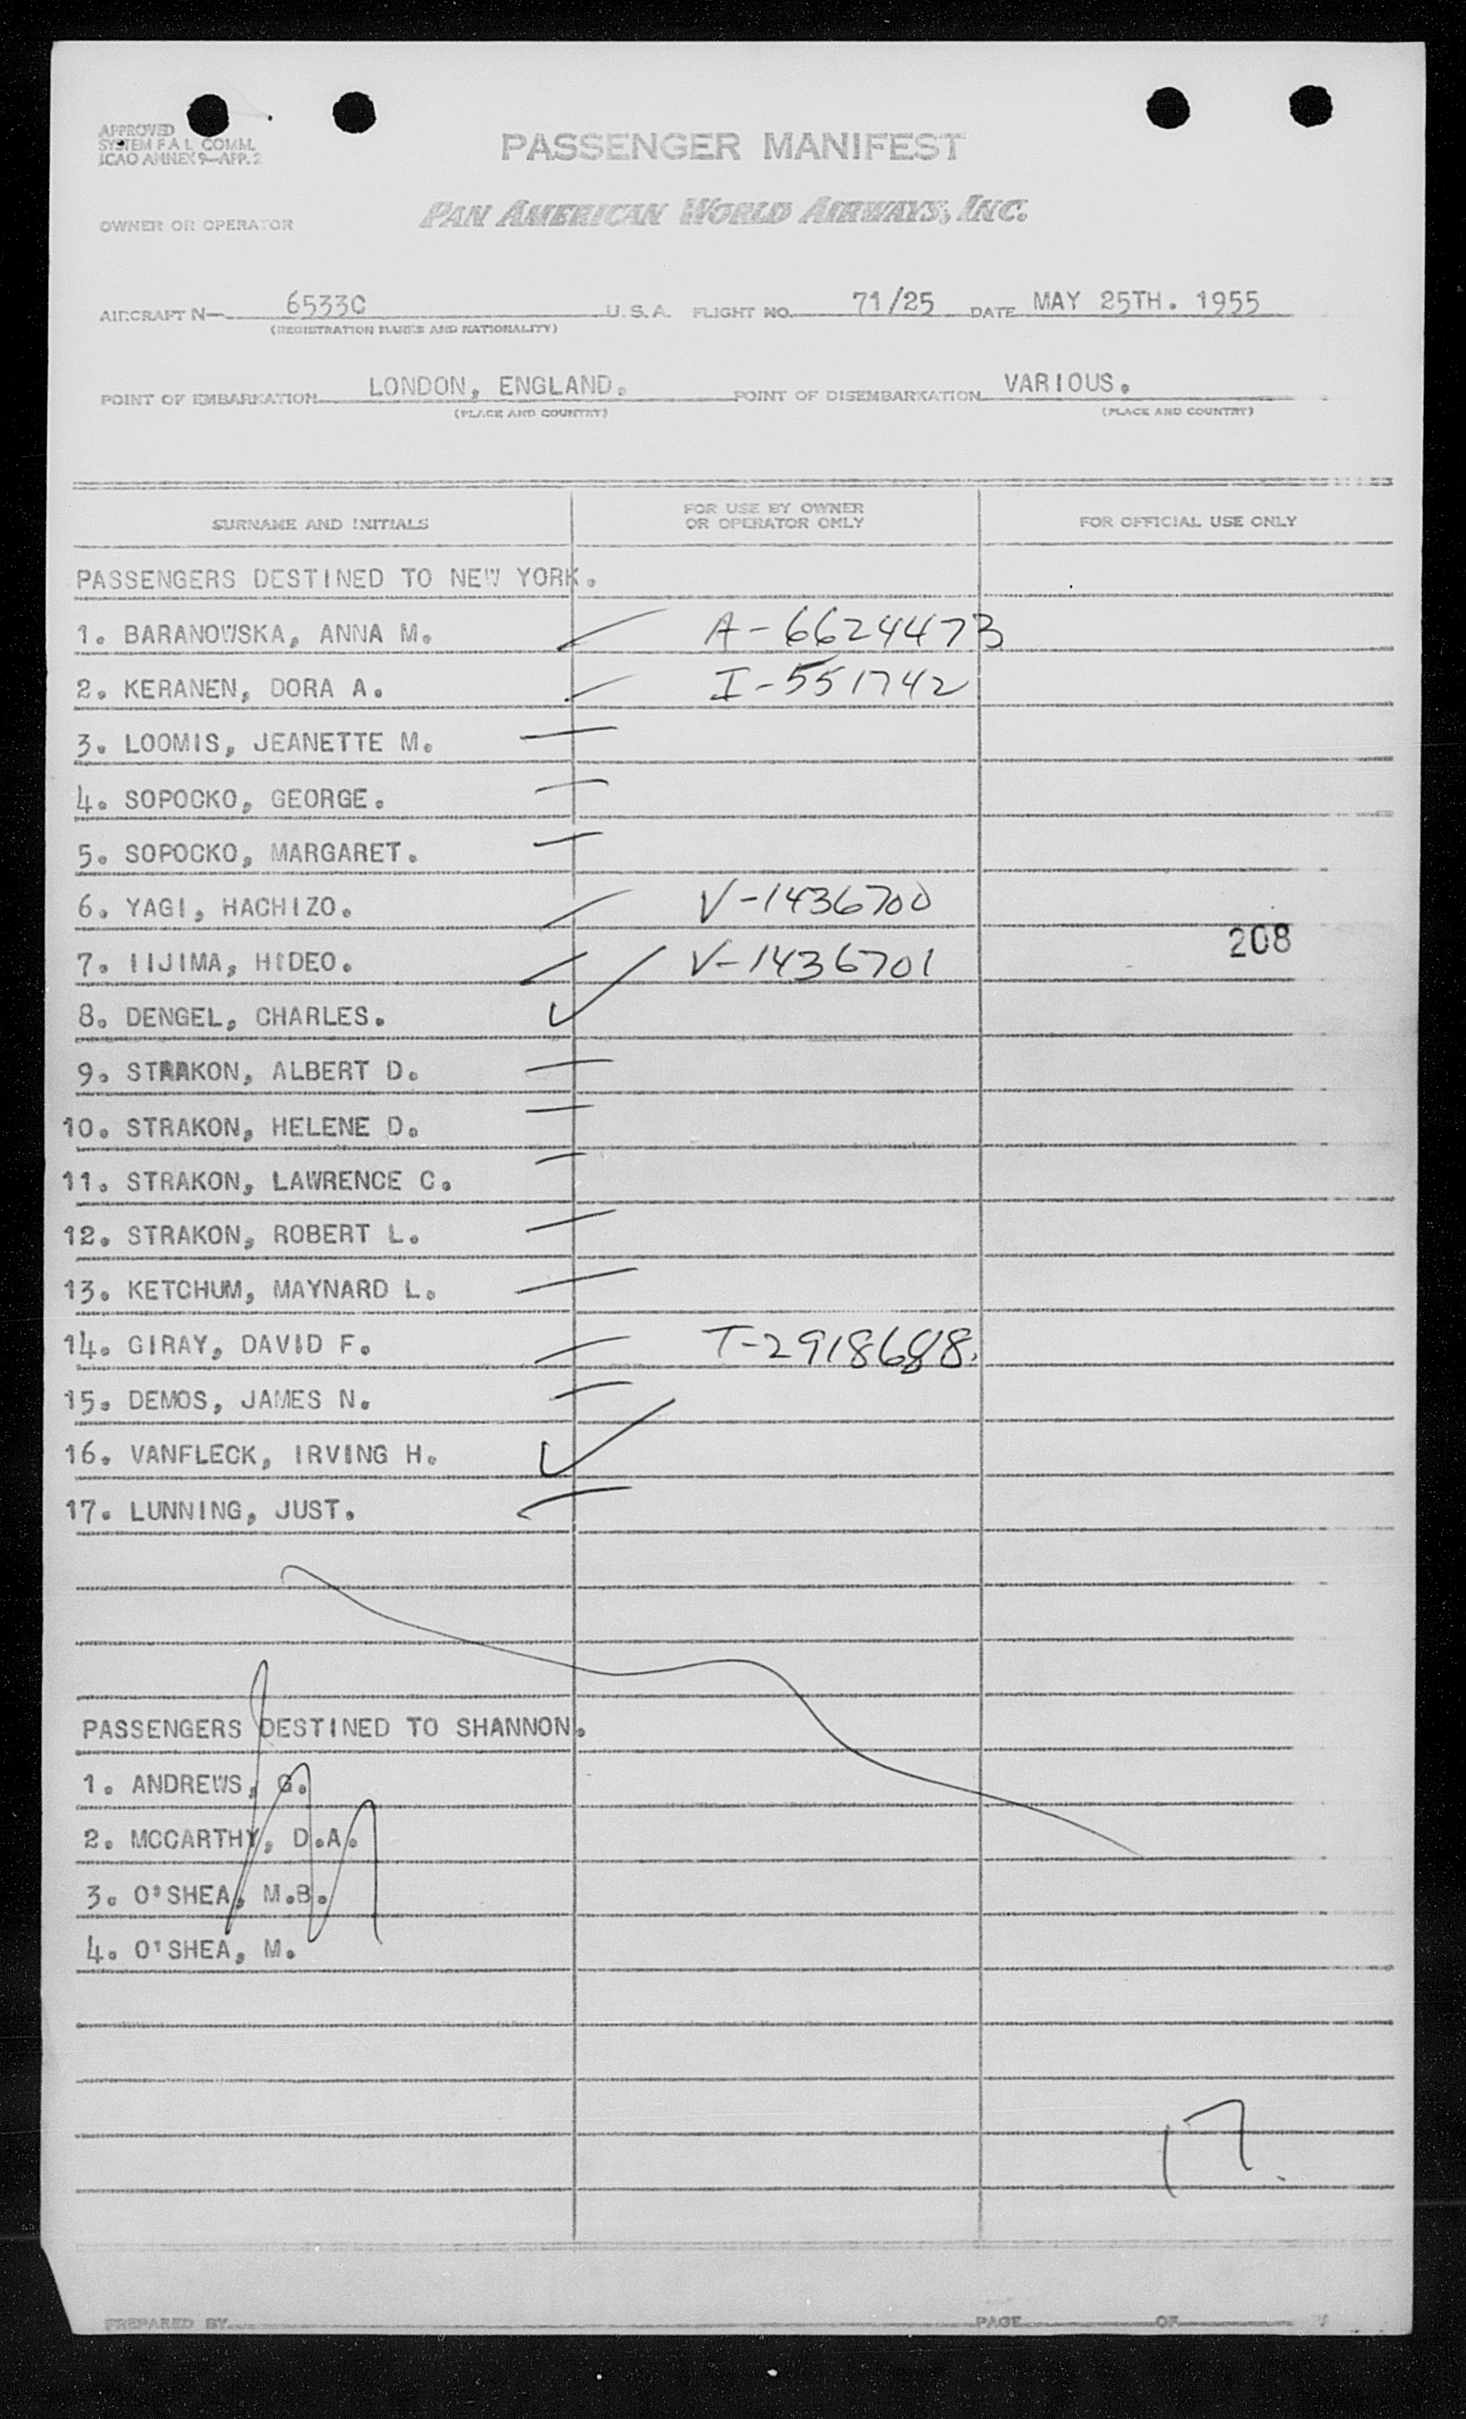 APPROVED
SYSTEM F.A.L. COMM.
ICAO ANNEX 9—APP. 2
PASSENGER MANIFEST
OWNER OR OPERATOR PAN AMERICAN WORLD AIRWAYS, INC.
AIRCRAFT N— 6533C U. S. A. FLIGHT NO. 71/25 DATE MAY 25TH. 1955
(REGISTRATION MARKS AND NATIONALITY)
POINT OF EMBARKATION LONDON, ENGLAND. POINT OF DISEMBARKATION VARIOUS.
(PLACE AND COUNTRY) (PLACE AND COUNTRY)
SURNAME AND INITIALS FOR USE BY OWNER OR OPERATOR ONLY FOR OFFICIAL USE ONLY
PASSENGERS DESTINED TO NEW YORK.
1. BARANOWSKA, ANNA M. A-6624473
2. KERANEN, DORA A. I-551742
3. LOOMIS, JEANETTE M.
4. SOPOCKO, GEORGE.
5. SOPOCKO, MARGARET.
6. YAGI, HACHIZO. V-1436700
7. IIJIMA, HIDEO. V-1436701 208
8. DENGEL, CHARLES.
9. STRAKON, ALBERT D.
10. STRAKON, HELENE D.
11. STRAKON, LAWRENCE C.
12. STRAKON, ROBERT L.
13. KETCHUM, MAYNARD L.
14. GIRAY, DAVID F. T-2918688.
15. DEMOS, JAMES N.
16. VANFLECK, IRVING H.
17. LUNNING, JUST.
PASSENGERS DESTINED TO SHANNON.
1. ANDREWS, G.
2. MCCARTHY, D.A.
3. O'SHEA, M.B.
4. O'SHEA, M.
17.
PREPARED BY PAGE OF